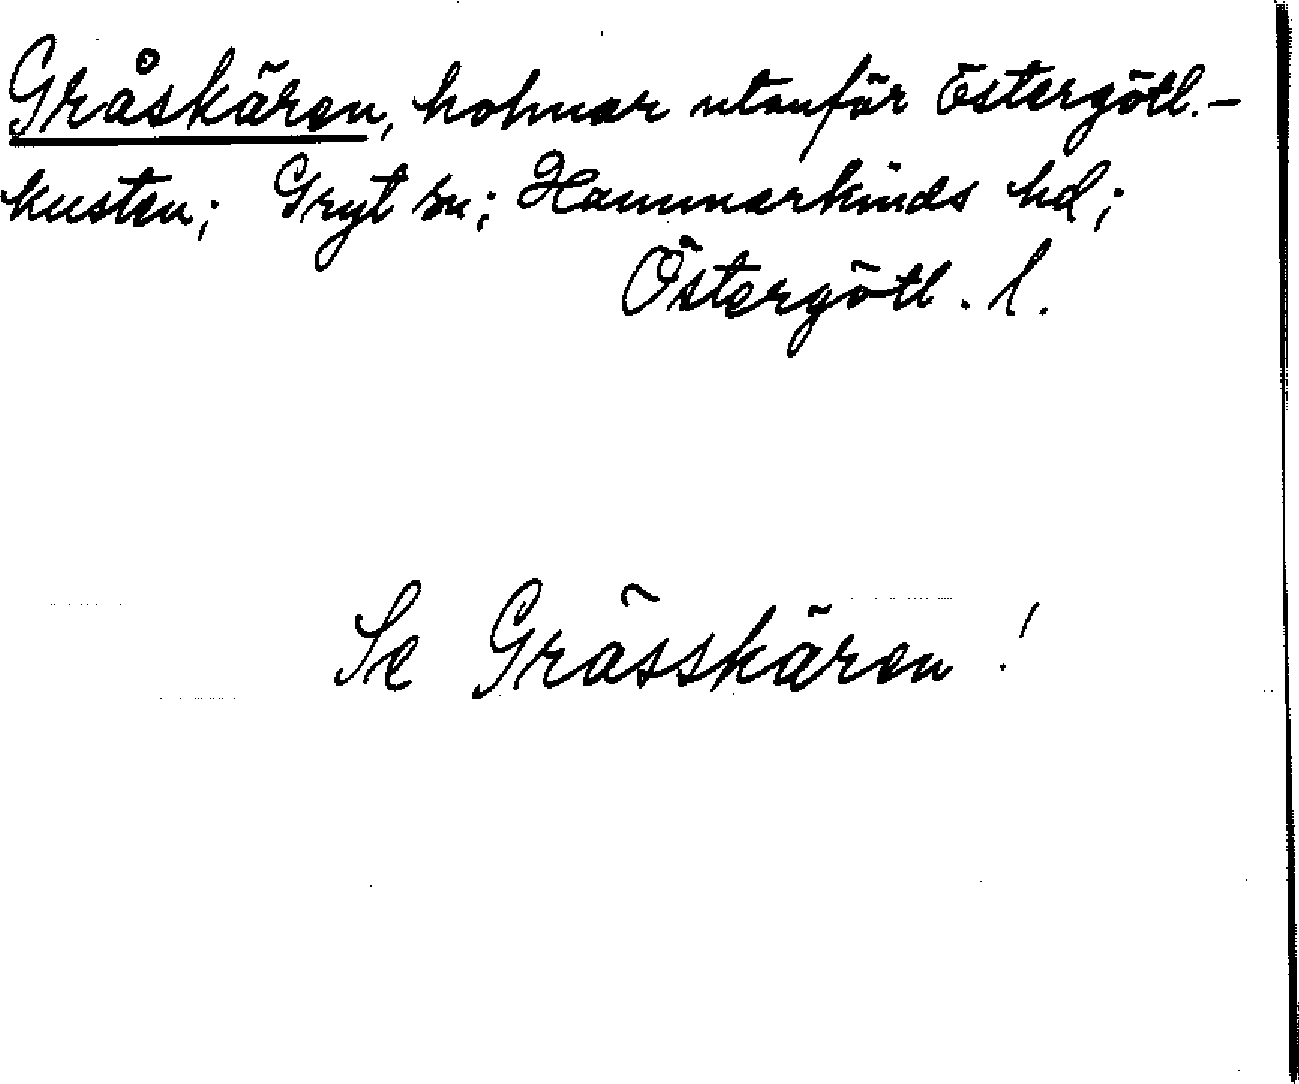 Gråskären, holmar utanför östergötl.-
kusten; Gryt sn; Hammarkinds hd;
Östergötl. l.
Se Grässkären!